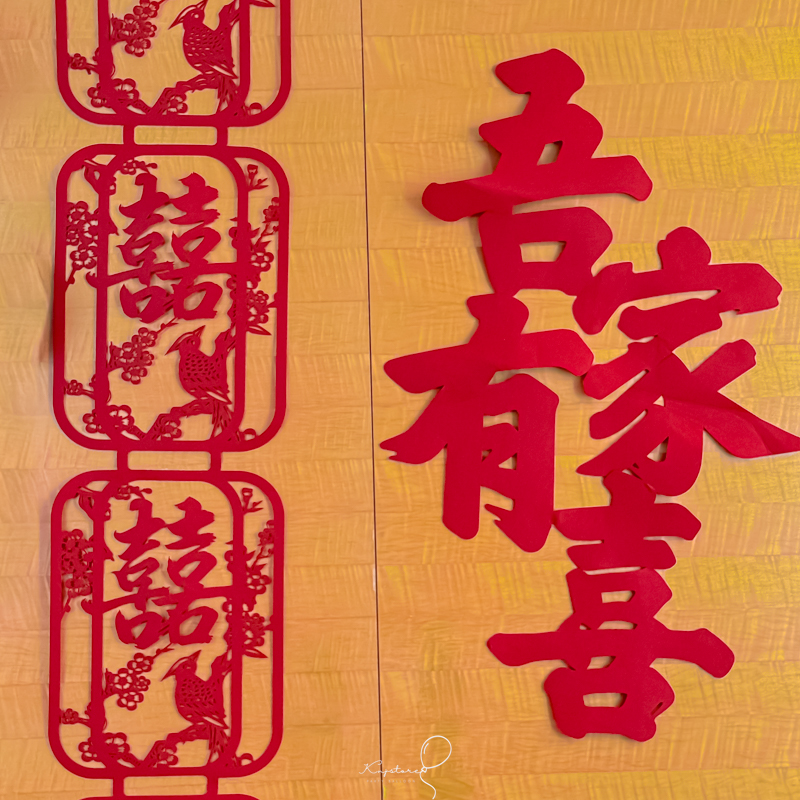 囍
囍
吾家有喜